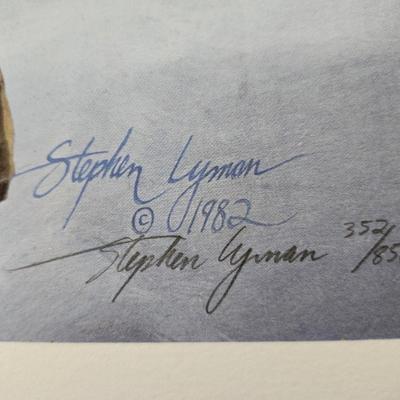 Stephen Lyman
© 1982
Stephen Lyman 352/85